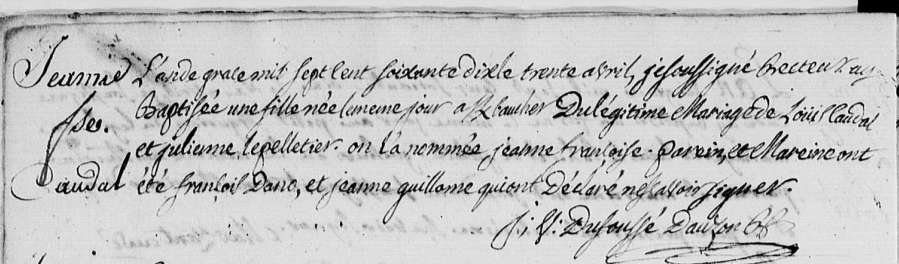 Jeanne
fse.
Caudal
L'an de grace mil sept cent soixante dix le trente avril, je soussigné Recteur ay
Baptisée une fille née le meme jour a Du légitime Mariage de Loüis Caudal
et julienne lepelletier. on l'a nommée jeanne françoise. parein, et Mareine ont
été françois Dano, et jeanne guillome qui ont Déclaré ne sçavoir signer.
Dufoussé Dauzon